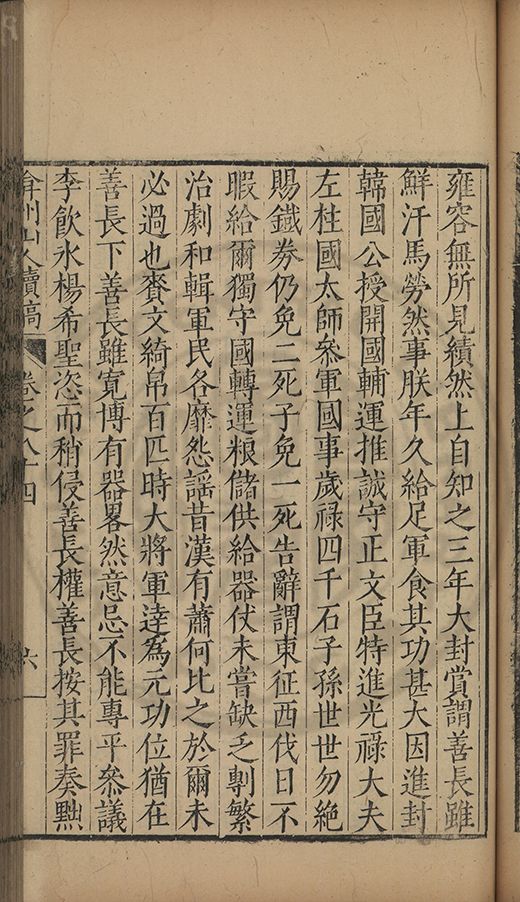 雍容無所見績然上自知之三年大封賞謂善長雖
鮮汗馬勞然事朕年久給足軍食其功甚大因進封
韓國公授開國輔運推誠守正文臣特進光祿大夫
左柱國太師叅軍國事歲祿四千石子孫世世勿絶
賜鐡券仍免二死子免一死告辭謂東征西伐日不
暇給爾獨守國轉運粮儲供給器仗未嘗缺乏剸繁
治劇和輯軍民各靡怨謡昔漢有蕭何比之於爾未
必過也賚文綺帛百匹時大將軍逹為元功位猶在
善長下善長雖寛博有器畧然意忌不能專平叅議
李飲氷楊希聖恣而稍侵善長權善長按其罪奏黥
弇州山人續稿
卷之八十四
六